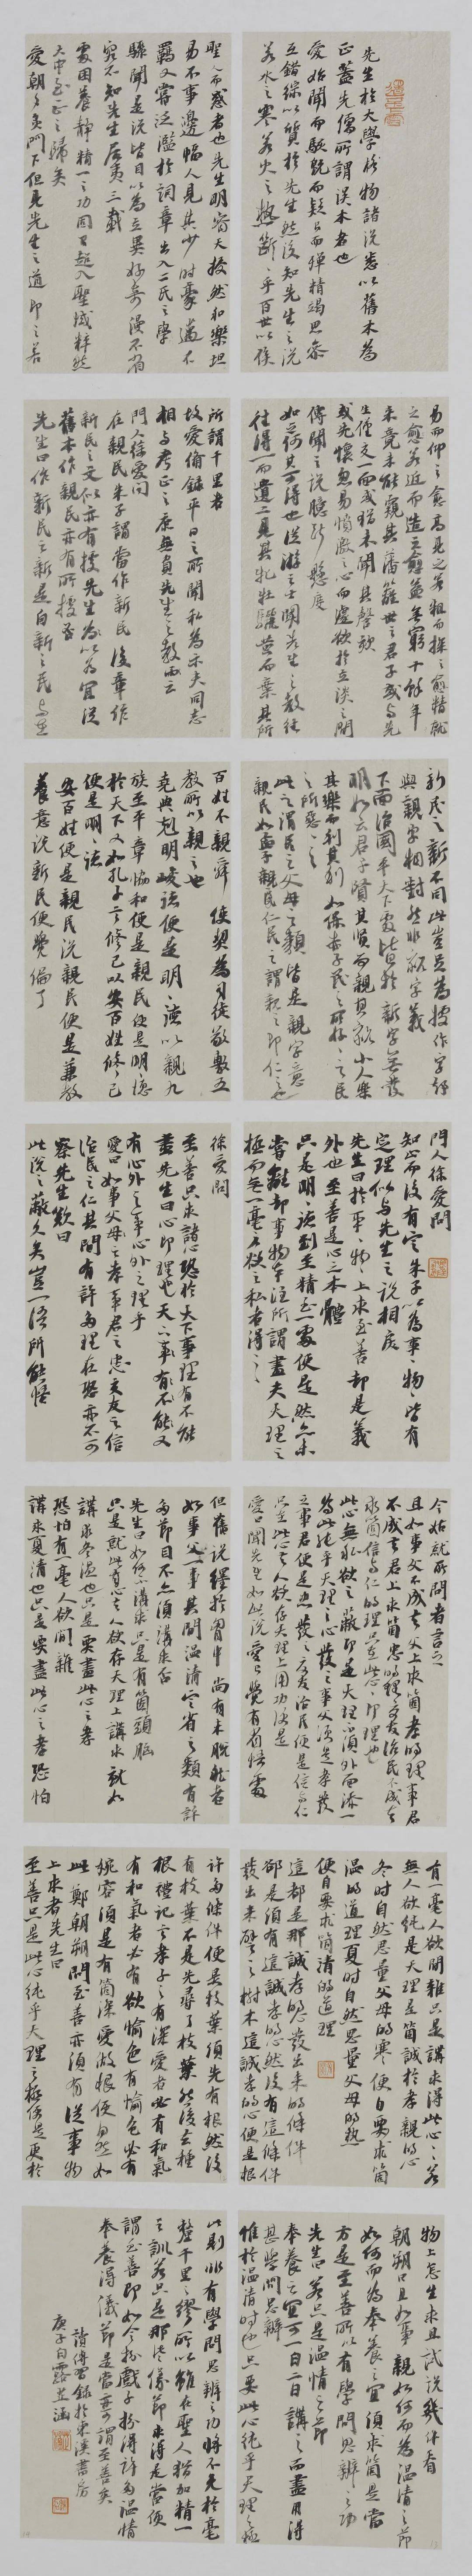 先生於大學格物諸說悉以舊本為
正蓋先儒所謂誤本者也
愛始聞而駭既而疑已而殫精竭思參
互錯綜以質於先生然後知先生之說
若水之寒若火之熱斷斷乎百世以俟
聖人而惑者也先生明睿天授然和樂坦
易不事邊幅人見其少時豪邁不
羈又嘗泛濫於詞章出入二氏之學
驟聞是說皆目以為立異好奇漫不省
究不知先生居夷三載
處困養靜精一之功固已超入聖域粹然
大中至正之歸矣
愛朝夕炙門下但見先生之道即之若
易而仰之愈高見之若粗而探之愈精就
之愈若近而造之愈益無窮十餘年
來竟未能窺其藩籬世之君子或與先
生僅交一面或猶未聞其謦欬
或先懷忽易憤激之心而遽欲於立談之間
傳聞之說臆斷懸度
如之何其可得也從游之士聞先生之教往
往得一而遺二見其牝牡驪黃而棄其所
所謂千里者
故愛備錄平日之所聞私為示夫同志
相與考正之庶無負先生之教云
門人徐愛問
在親民朱子謂當作新民後章作
新民之文似亦有據先生為以為宜從
舊本作親民亦有所據否
先生曰作新民之新是自新之民與在
新民之新不同此豈足為據作字却
與親字相對然非親字義
下面治國平天下處皆於新字無發
明如云君子賢其賢而親其親小人樂
其樂而利其利如保赤子民之所好好之民
之所惡惡之
此之謂民之父母之類皆是親字意
親民如孟子親親仁民之謂親之即仁之也
百姓不親舜使契為司徒敬敷五
教所以親之也
堯典克明峻德便是明明德以親九
族至平章協和便是親民便是明明德
於天下又如孔子言修己以安百姓修己
便是明明德
安百姓便是親民說親民便是兼教
養意說新民便覺偏了
門人徐愛問
知止而後有定朱子以為事事物物皆有
定理似與先生之說相戾
先生曰於事事物物上求至善却是義
外也至善是心之本體
只是明明德到至精至一處便是然亦未
嘗離却事物本注所謂盡夫天理之
極而無一毫人欲之私者得之
徐愛問
至善只求諸心恐於天下事理有不能
盡先生曰心即理也天下又
有心外之事心外之理乎
愛曰如事父母之孝事君之忠交友之信
治民之仁其間有許多理在恐亦不可
察先生歎曰
此說之蔽久矣豈一語所能悟
今姑就所問者言之
且如事父不成去父上求箇孝的理事君
不成去君上求箇忠的理交友治民不成去
求箇信與仁的理只在此心心即理也
此心無私欲之蔽即是天理不須外面添一
分以此純乎天理之心發之事父便是孝發
之事君便是忠發之交友治民便是信與仁
只在此心去人欲存天理上用功便是
愛曰聞先生如此說愛已覺有省悟處
但舊說纏於胸中尚有未脫然者
如事父一事其間溫凊定省之類有許
多節目不亦須講求否
先生曰如何不講求只是有箇頭腦
只是就此心去人欲存天理上講求就如
講求冬溫也只是要盡此心之孝
恐怕有一毫人欲間雜
講求夏凊也只是要盡此心之孝恐怕
有一毫人欲間雜只是講求得此心此心若
無人欲純是天理是箇誠於孝親的心
冬時自然思量父母的寒便自要求箇
溫的道理夏時自然思量父母的熱
便自要求箇凊的道理
這都是那誠孝的心發出來的條件
卻是須有這誠孝的心然後有這條件
發出來譬之樹木這誠孝的心便是根
許多條件便是枝葉須先有根然後
有枝葉不是先尋了枝葉然後去種
根禮記言孝子之有深愛者必有和氣
有和氣者必有愉色有愉色必有
婉容須是有箇深愛做根便自然如
此鄭朝朔問至善亦須有從事物
上求者先生曰
至善只是此心純乎天理之極便是更於
物上怎生求且試說幾件看
朝朔曰且如事親如何而為溫凊之節
如何而為奉養之宜須求箇是當
方是至善所以有學問思辨之功
先生曰若只是溫凊之節
奉養之宜可一日二日講之而盡用得
甚學問思辨
惟於溫凊時也只要此心純乎天理之極
此則非有學問思辨之功將不免於毫
釐千里之繆所以雖在聖人猶加精一
之訓若只是那些儀節求得是當便
謂至善即如今扮戲子扮得許多溫凊
奉養得儀節是當亦可謂至善矣
讀傳習錄於東溪書房
庚子白露